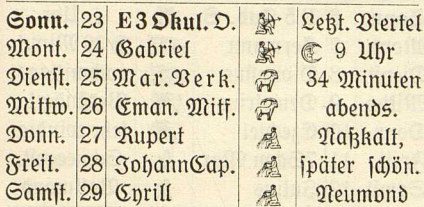 Sonn. 23 E 3 Okul. O. Letzt. Viertel
Mont. 24 Gabriel ☾ 9 Uhr
Dienst. 25 Mar. Verk. 34 Minuten
Mittw. 26 Eman. Mitf. abends.
Donn. 27 Rupert Naßkalt,
Freit. 28 Johann Cap. später schön.
Samst. 29 Cyrill Neumond